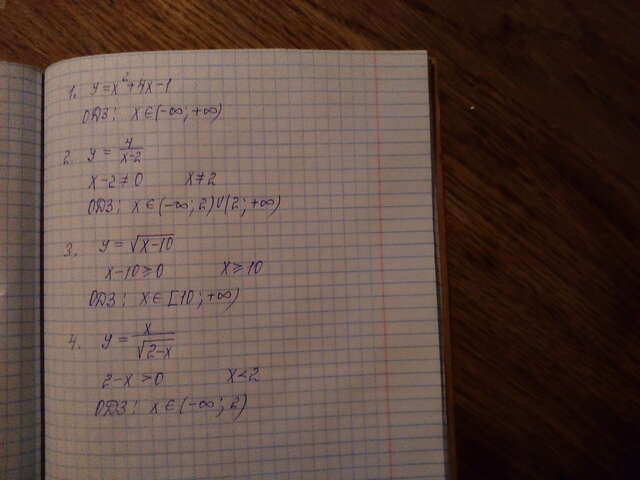 1. y=x²+4x-1
ОДЗ: x∈(-∞; +∞)
2. y = 4/(x-2)
x-2≠0 x≠2
ОДЗ: x∈(-∞; 2)∪(2; +∞)
3. y=√(x-10)
x-10≥0 x≥10
ОДЗ: x∈[10; +∞)
4. y = x/√(2-x)
2-x>0 x<2
ОДЗ: x∈(-∞; 2)